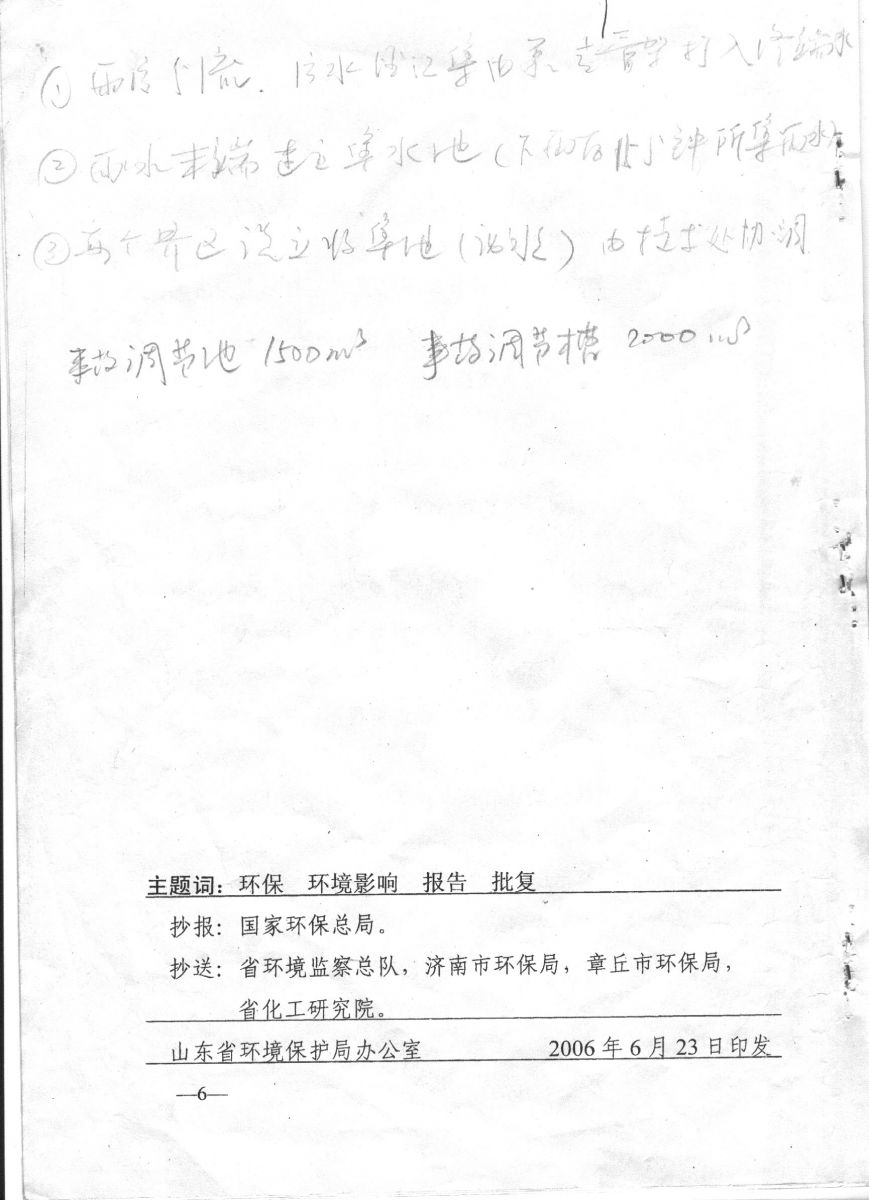 ① 雨污分流. 污水经汇集由泵 管架打入终端水
② 雨水末端建立集水池（下雨后15分钟所集雨水）
③ 每个界区设立收集池（ ）由技术处协调
事故调节池 1500m³ 事故调节槽 2000m³
主题词：环保 环境影响 报告 批复
抄报：国家环保总局。
抄送：省环境监察总队，济南市环保局，章丘市环保局，
省化工研究院。
山东省环境保护局办公室 2006年6月23日印发
—6—